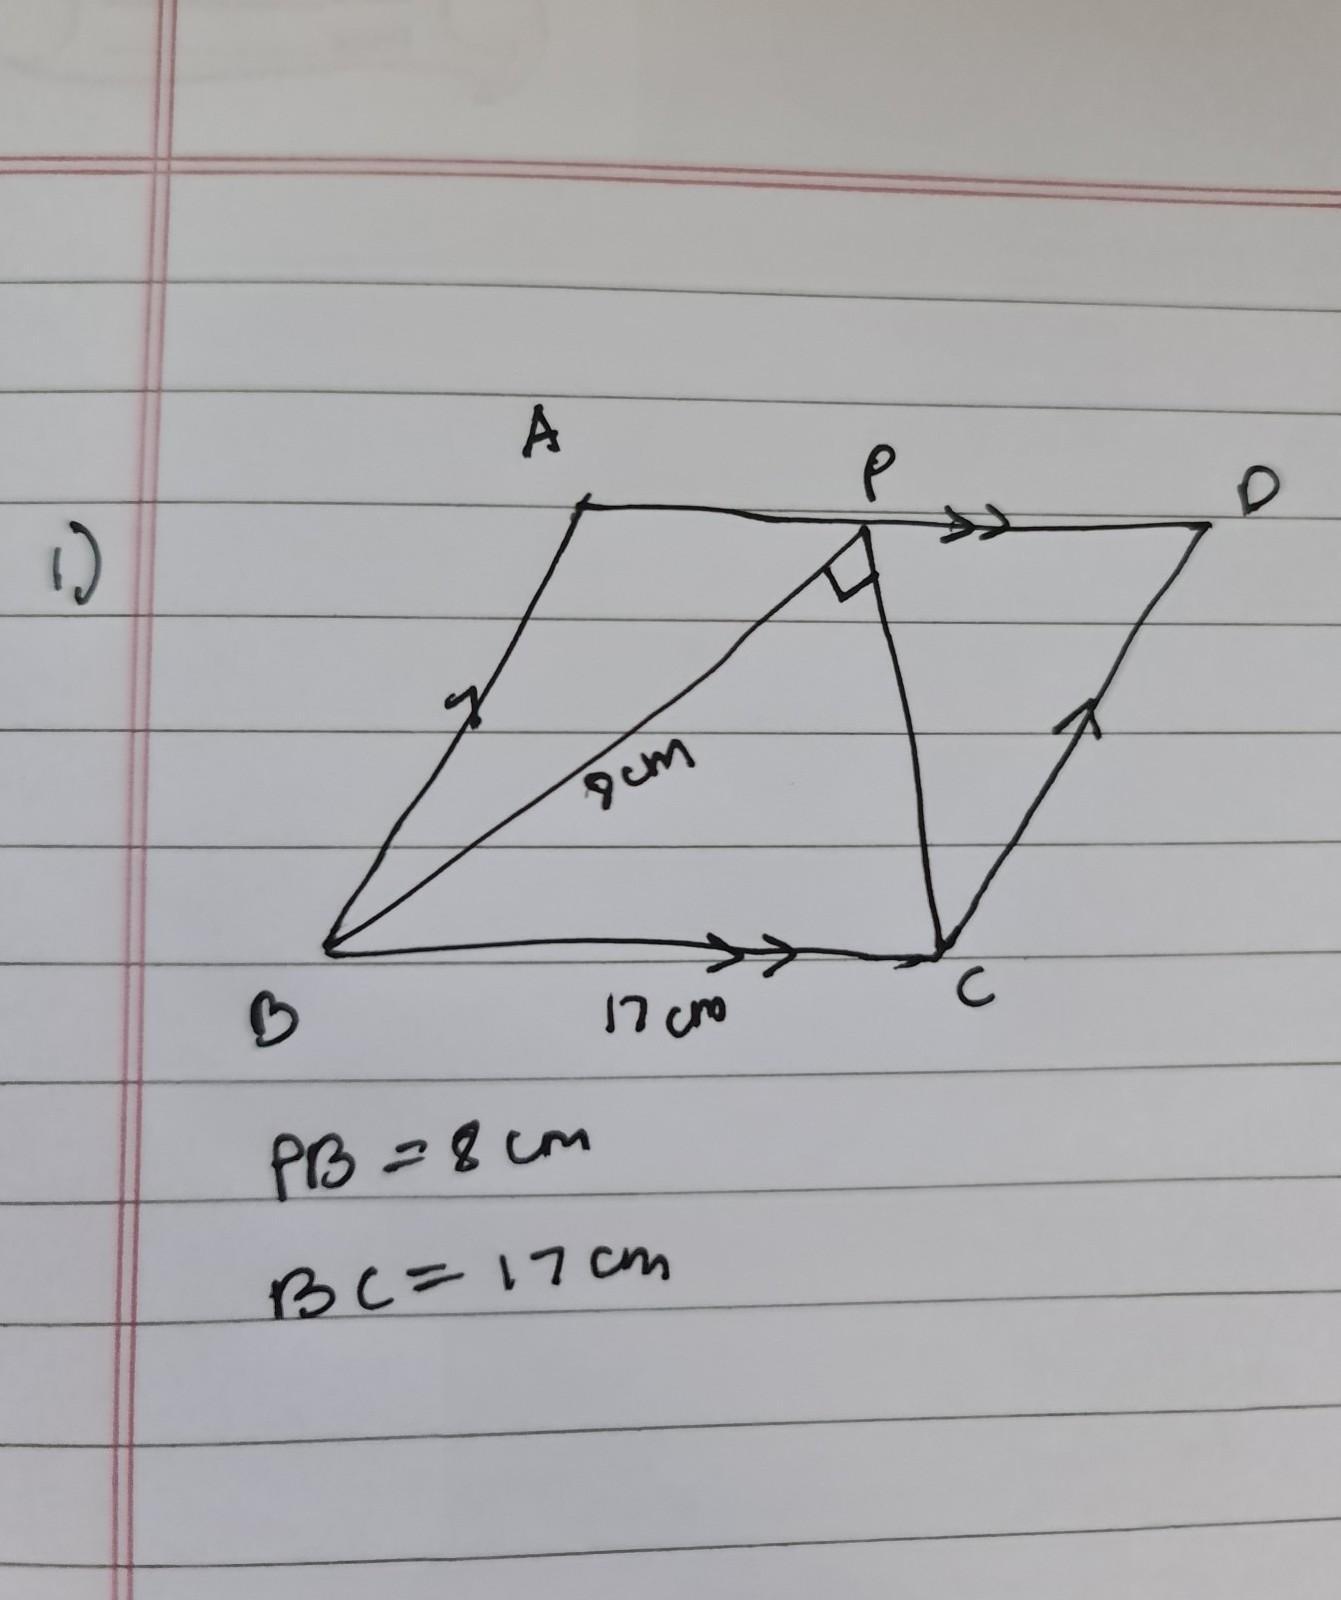 A
P
D
1)
8cm
B
17 cm
C
PB = 8 cm
BC = 17 cm